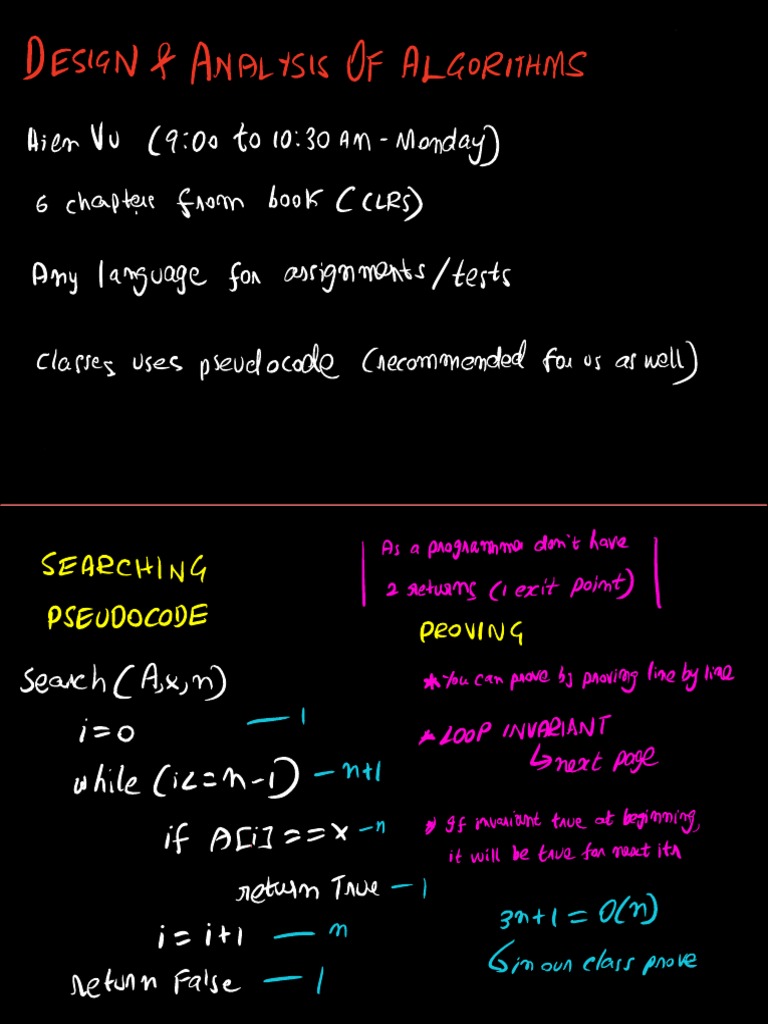 DESIGN & ANALYSIS OF ALGORITHMS
Hien Vu (9:00 to 10:30 AM - Monday)
6 chapters from book (CLRS)
Any language for assignments/tests
Classes uses pseudocode (recommended for us as well)
SEARCHING
PSEUDOCODE
Search(A,x,n)
i=0 — 1
while (i<=n-1) — n+1
if A[i]==x — n
return True — 1
i=i+1 — n
return False — 1
As a programmer don't have
2 returns (1 exit point)
PROVING
* You can prove by proving line by line
* LOOP INVARIANT
↳ next page
* If invariant true at beginning,
it will be true for next itr
3n+1 = O(n)
↳ in our class prove